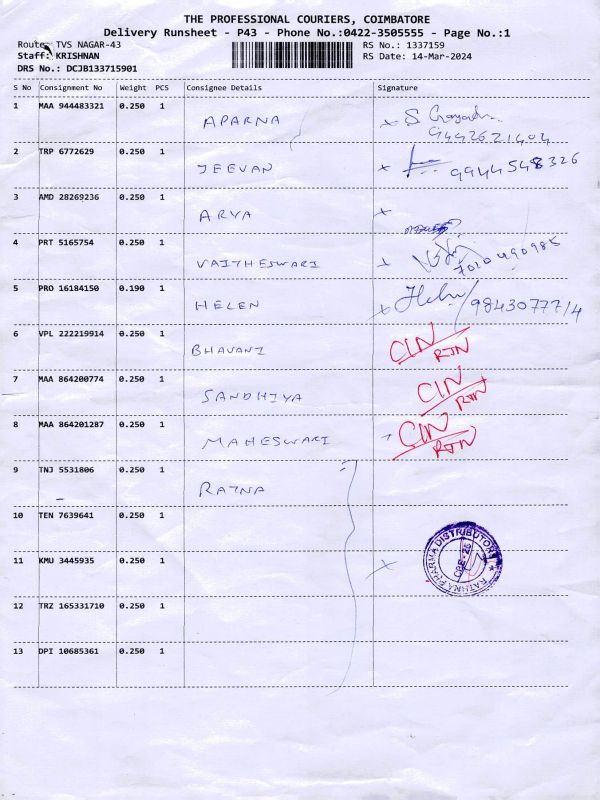 THE PROFESSIONAL COURIERS, COIMBATORE
Delivery Runsheet - P43 - Phone No.:0422-3505555 - Page No.:1
Route: TVS NAGAR-43 RS No.: 1337159
Staff: KRISHNAN RS Date: 14-Mar-2024
DRS No.: DCJB133715901
S No Consignment No Weight PCS Consignee Details Signature
1 MAA 944483321 0.250 1 APARNA x S Gayathri
9442621404
2 TRP 6772629 0.250 1 JEEVAN x 9944548326
3 AMD 28269236 0.250 1 ARYA x
4 PRT 5165754 0.250 1 VAITHESWARI x 7010490985
5 PRO 16184150 0.190 1 HELEN x Helen 9843077714
6 VPL 222219914 0.250 1 BHAVANI CIN
RTN
7 MAA 864200774 0.250 1 SANDHIYA CIN
RTN
8 MAA 864201287 0.250 1 MAHESWARI CIN
RTN
9 TNJ 5531806 0.250 1 RATNA
10 TEN 7639641 0.250 1
11 KMU 3445935 0.250 1 x RATHNA PHARMA DISTRIBUTORS CBE-25
12 TRZ 165331710 0.250 1
13 DPI 10685361 0.250 1